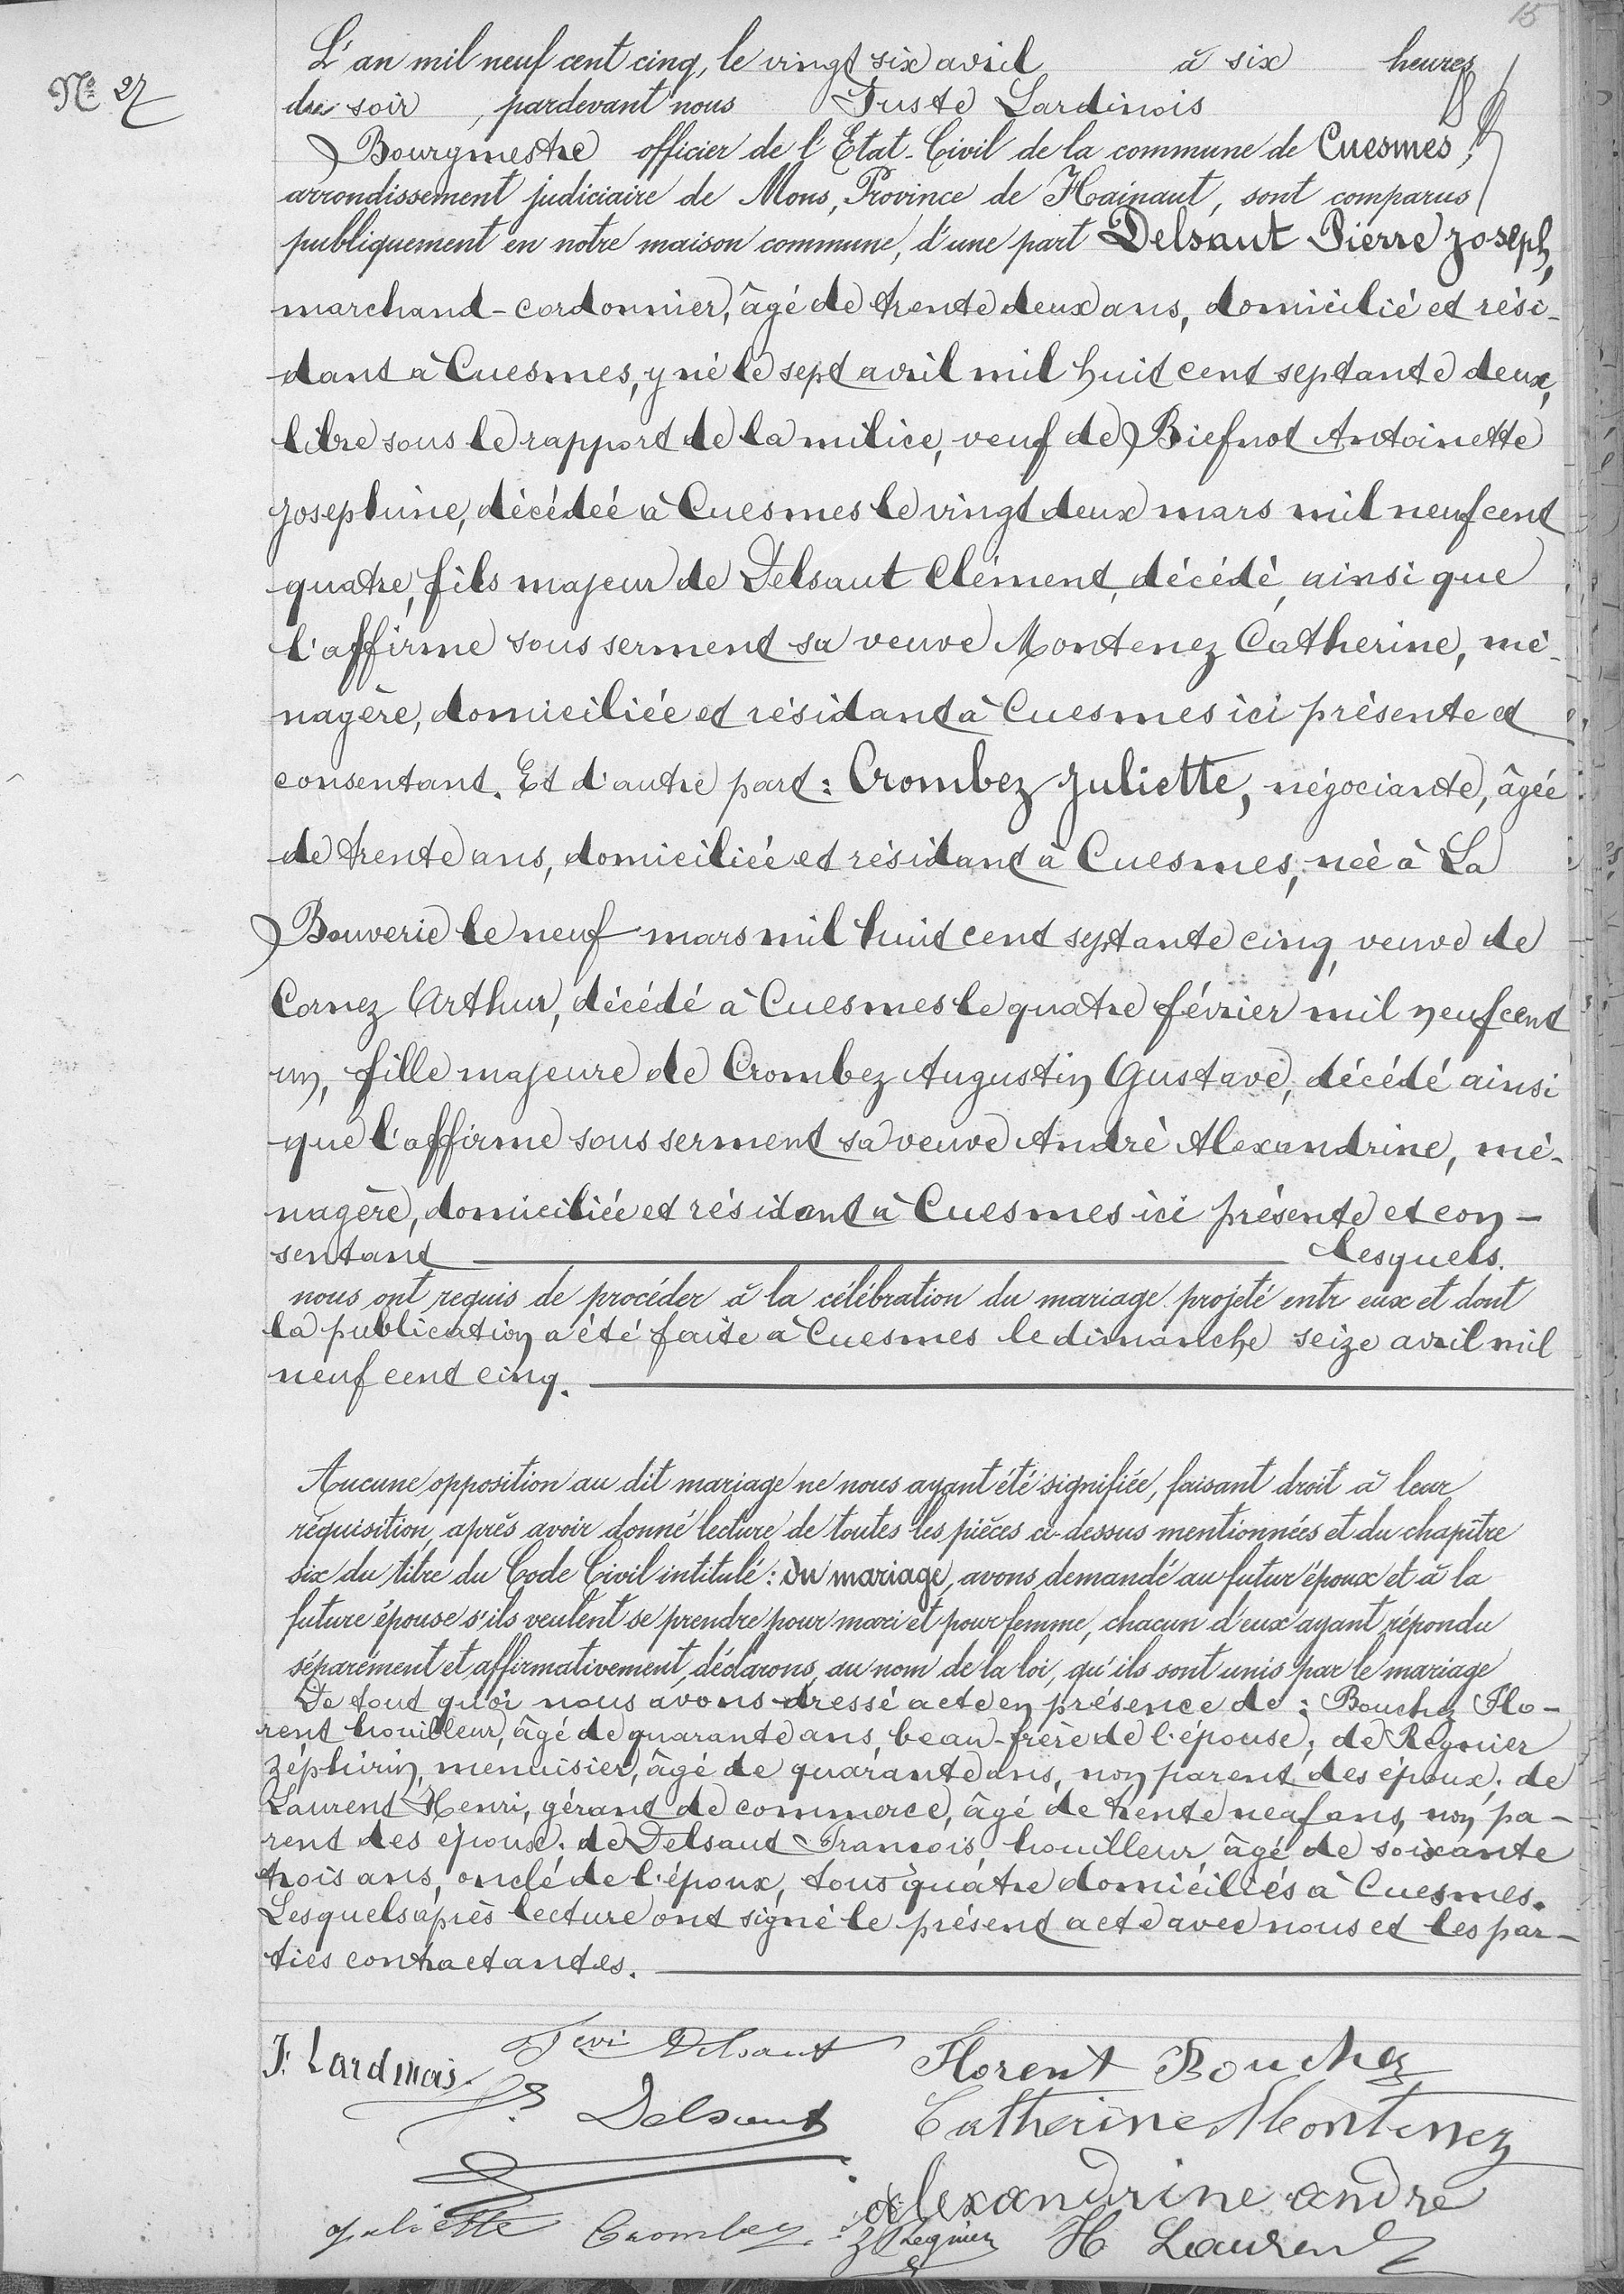 15
L'an mil neuf cent cinq, le vingt six avril à six heures
Nº 27
du soir, pardevant nous Juste Lardinois
Bourgmestre officier de l'Etat-Civil de la commune de Cuesmes,
arrondissement judiciaire de Mons, Province de Hainaut, sont comparus
publiquement en notre maison commune, d'une part Delsaut Pierre Joseph,
marchand-cordonnier, âgé de trente deux ans, domicilié et rési-
dant à Cuesmes, y né le sept avril mil huit cent septante deux,
libre sous le rapport de la milice, veuf de Biefnot Antoinette
Josephine, décédéé à Cuesmes le vingt deux mars mil neuf cent
quatre, fils majeur de Delsaut Clément, décédé, ainsi que
l'affirme sous serment sa veuve Montenez Catherine, mé-
nagère, domiciliée et résidant à Cuesmes ici présente et
consentant. Et d'autre part: Crombez Juliette, négociante, âgée
de trente ans, domiciliée et résidant à Cuesmes, née à La
Bouverie le neuf mars mil huit cent septante cinq, veuve de
Cornez Arthur, décédé à Cuesmes le quatre février mil neuf cent
un, fille majeure de Crombez Augustin Gustave, décédé ainsi
que l'affirme sous serment sa veuve André Alexandrine, mé-
nagère, domiciliée et résidant à Cuesmes ici présente et con-
sentant lesquels.
nous ont requis de procéder à la célébration du mariage projeté entr eux et dont
la publication a été faite à Cuesmes le dimanche seize avril mil
neuf cent cinq.
Aucune opposition au dit mariage ne nous ayant été signifiée, faisant droit à leur
réquisition, après avoir donné lecture de toutes les pièces ci-dessus mentionnées et du chapitre
six du titre du Code Civil intitulé: du mariage, avons demandé au futur époux et à la
future épouse s'ils veulent se prendre pour mari et pour femme, chacun d'eux ayant répondu
séparément et affirmativement, déclarons, au nom de la loi, qu'ils sont unis par le mariage
De tout quoi nous avons dressé acte en présence de: Bouchez Flo-
rent houilleur, âgé de quarante ans, beau-frère de l'épouse; de Regnier
Zéphirin, menuisier, âgé de quarante ans, non parent des époux; de
Laurent Henri, gérant de commerce, âgé de trente neuf ans, non pa-
rent des époux; de Delsaut François, houilleur âgé de soixante
trois ans, oncle de l'époux, tous quatre domiciliés à Cuesmes.
Lesquels après lecture ont signé le présent acte avec nous et les par-
ties contractantes.
J. Lardinois
Delsaut
Florent Bouchez
Delsaut
Catherine Montenez
Alexandrine andre
Juliette Crombez
Z Regnier
H Laurent